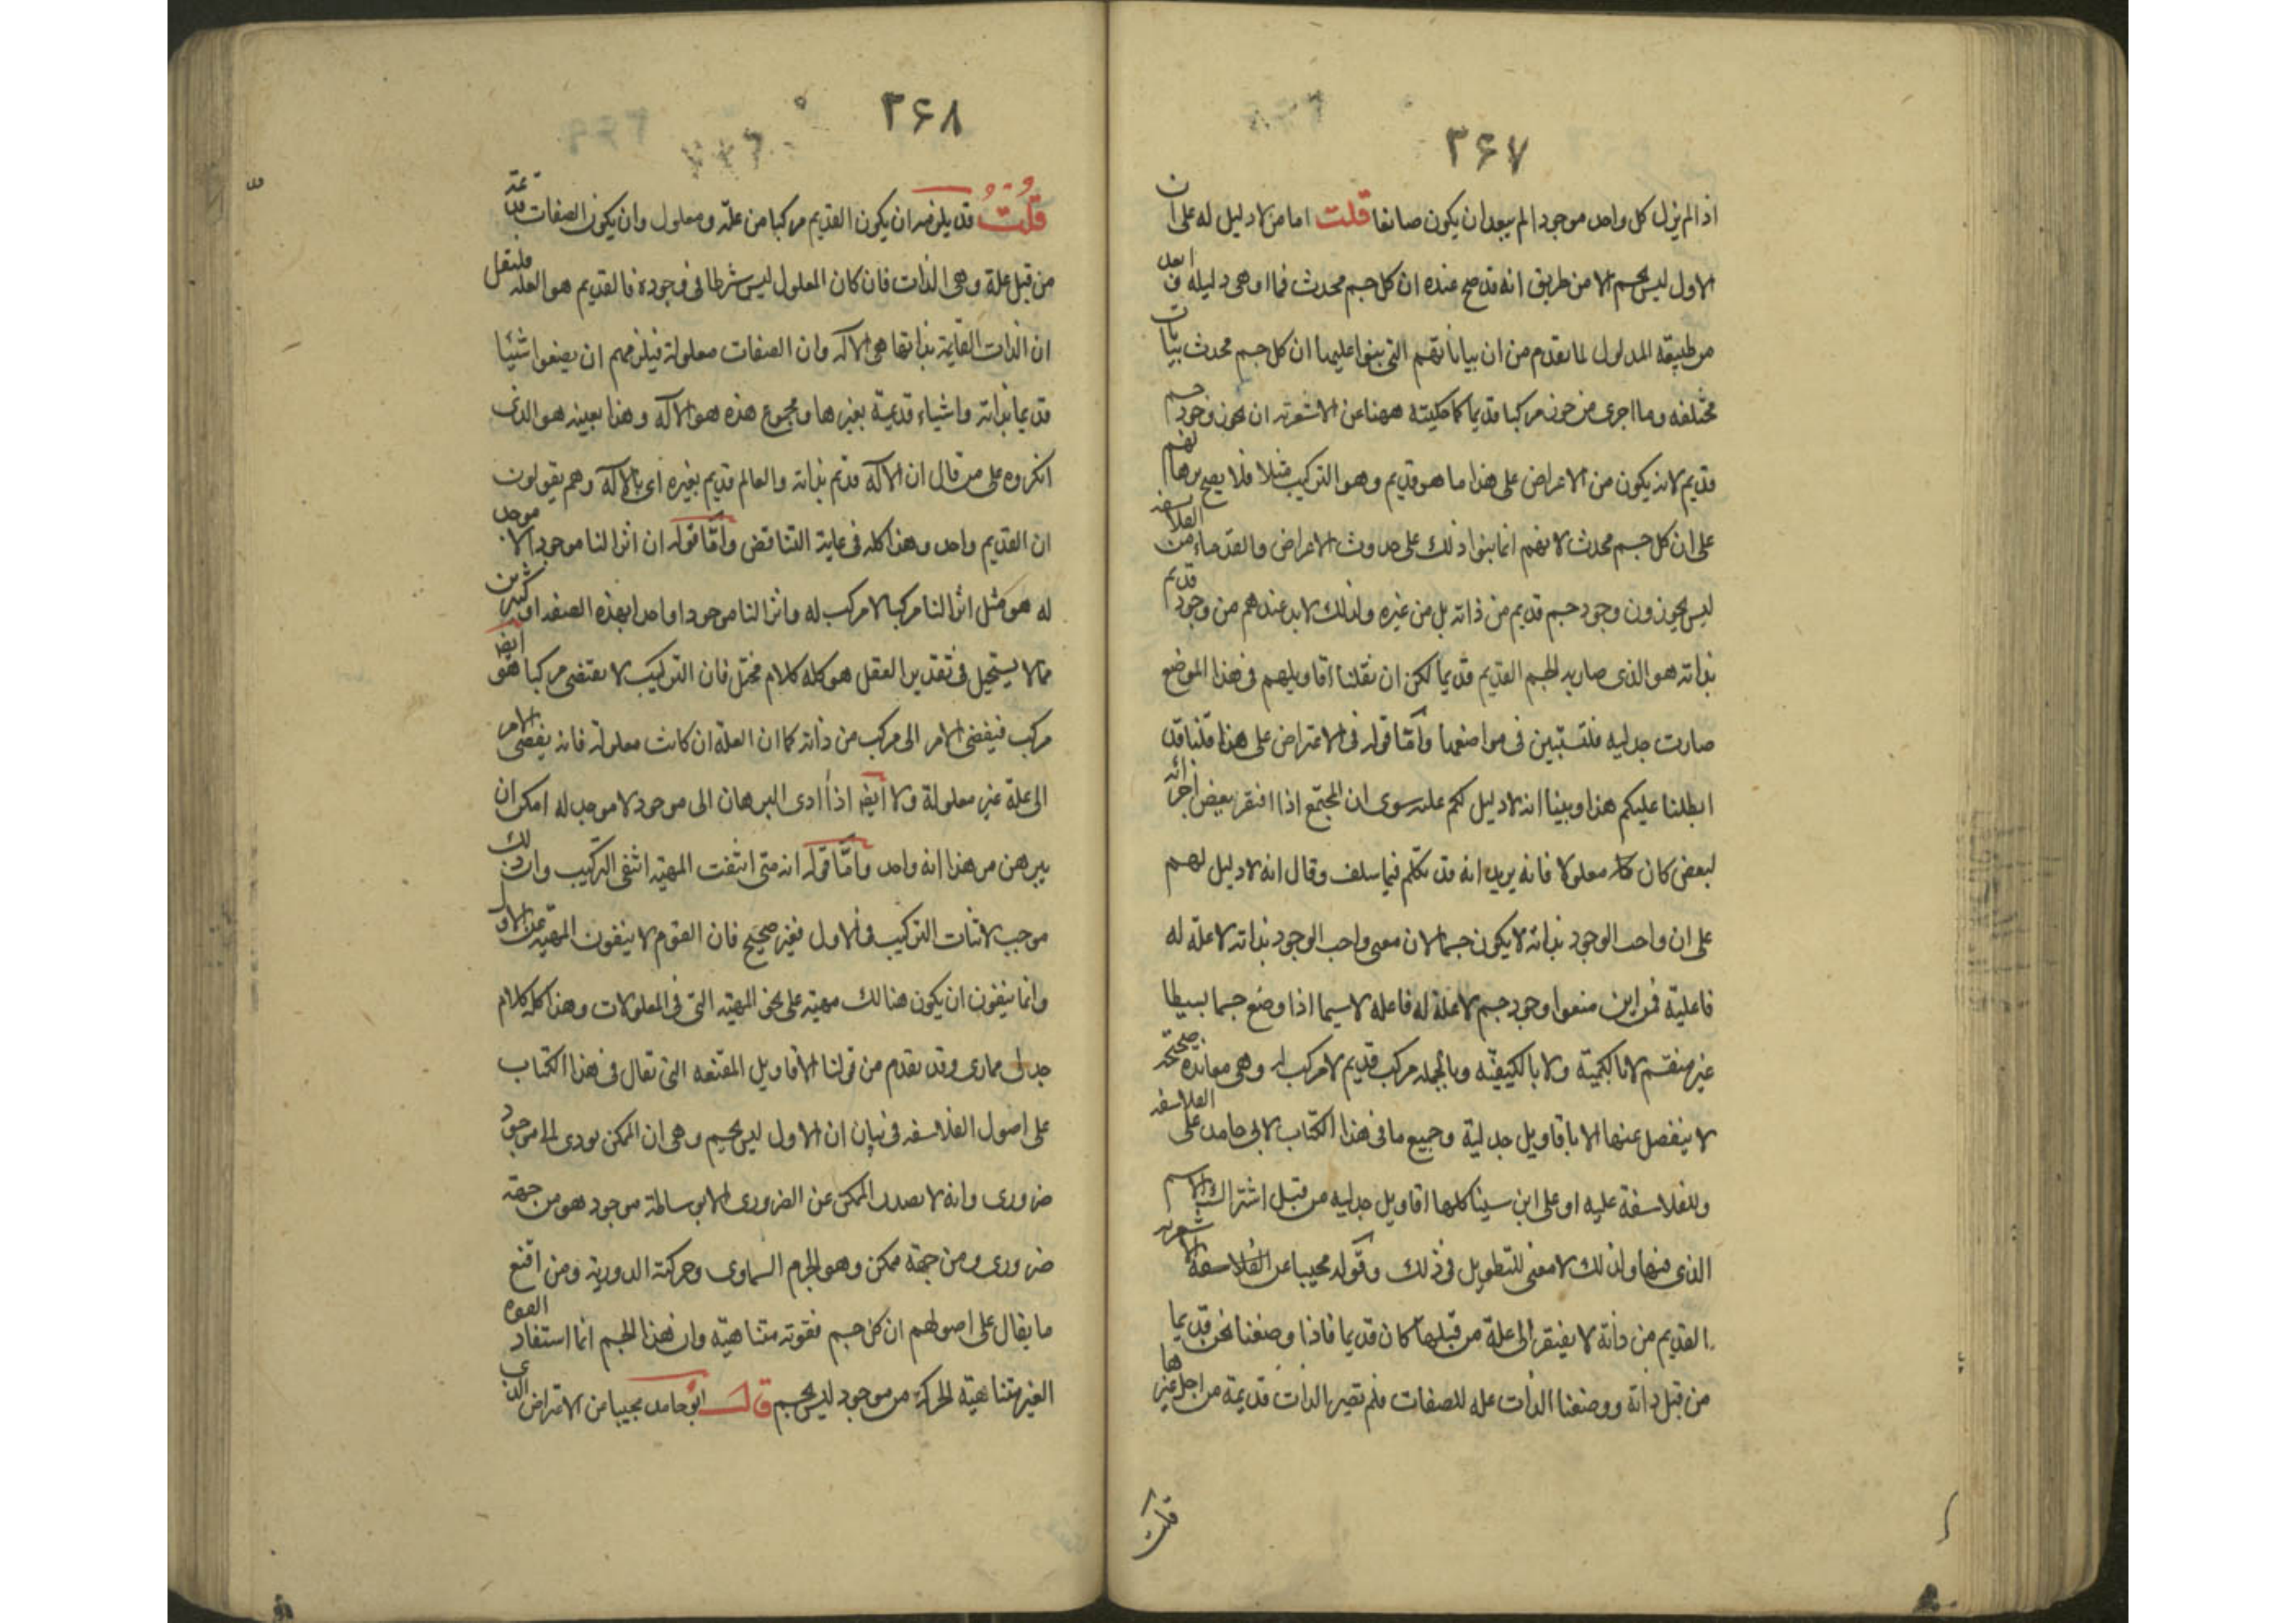 ٣۶٧
اذا لم يزل كل واحد موجودا لم يبعد ان يكون صانعا قلت اما من لا دليل له على ان
الاول ليس بجسم الا من طريق انه قد صح عنده ان كل جسم محدث فما اوهى دليله و ابعده
من طبيعة المدلول لما تقدم من ان بياناتهم التى بنوا عليها ان كل جسم محدث بيانات
مختلفه وما احرى من جوز مركبا قديما كما حكيته ههنا عن الاشعريه ان يجوز وجود جسم
قديم لانه يكون من الاعراض على هذا ما هو قديم وهو التركيب مثلا فلا يصح برهانهم
على ان كل جسم محدث لانهم انما بنوا ذلك على حدوث الاعراض والقدماء من الفلاسفه
ليس يجوزون وجود جسم قديم من ذاته بل من غيره ولذلك لا بد عندهم من وجود قديم
بذاته هو الذى صار به الجسم القديم قديما لكن ان نقلنا اقاويلهم فى هذا الموضع
صارت جدليه فلتستبين فى مواضعها وأمّا قوله فى الاعتراض على هذا قلنا قد
ابطلنا عليكم هذا وبينا انه لا دليل لكم عليه سوى ان المجتمع اذا افتقر بعض اجزائه
لبعض كان معلولا فانه يريد انه قد تكلم فيما سلف وقال انه لا دليل لهم
على ان واجب الوجود بذاته لا يكون جسما لان معنى واجب الوجود بذاته لا علة له
فاعليّة فمن اين منعوا وجود جسم لا علة له فاعله لا سيما اذا وضع جسما بسيطا
غير منقسم لا بالكميّة ولا بالكيفيّه وبالجمله مركب قديم لا مركب له وهى معانده صحيحه
لا ينفصل عنها الا باقاويل جدلية وجميع ما فى هذا الكتاب لابى حامد على الفلاسفه
وللفلاسفة عليه او على ابن سينا كلها اقاويل جدليه من قبل اشتراك الاسم
الذى فيها ولذلك لا معنى للتطويل فى ذلك وقوله مجيبا عن الاشعريه
القديم من ذاته لا يفتقر الى علة من قبلها كان قديما فاذا وضعنا نحن قديما
من قبل ذاته ووضعنا الذات عله للصفات فلم تصير الذات قديمة من اجل غيرها
قلت
٣۶٨
قلتُ قد يلزمه ان يكون القديم مركبا من علّة ومعلول وان يكون الصفات قديمة
من قبل علة وهى الذات فان كان المعلول ليس شرطا فى وجوده فالقديم هو العله فلنقل
ان الذات القائمة بذاتها هى الآله وان الصفات معلولة فيلزمهم ان يضعوا شيئا
قديما بذاته واشياء قديمة بغيرها ومجموع هذه هو الآله وهذا بعينه هو الذى
انكروه على من قال ان الآله قديم بذاته والعالم قديم بغيره اى بالآله وهم يقولون
ان القديم واحد وهذا كله فى غاية التناقض وأمّا قوله ان انزالنا موجودا لا موجد
له هو مثل انزالنا مركبا لا مركب له وانزالنا موجودا واحدا بهذه الصفه او كثيرين
مما لا يستحيل فى تقدير العقل هو كله كلام مختل فان التركيب لا يقتضى مركبا هو ايضا
مركب فيفضى الامر الى مركب من ذاته كما ان العلة ان كانت معلولة فانه يفضى الامر
الى علة غير معلولة ولا ايضا اذا ادى البرهان الى موجود لا موجد له امكن ان
يبرهن من هذا انه واحد وأمّا قوله انه متى انتفت المهيّه انتفى التركيب وان ذلك
موجب لاثبات التركيب فى الاول فغير صحيح فان القوم لا ينفون المهيّه عن الاول
وانما ينفون ان يكون هنالك مهيّه على نحو المهيّه التى فى المعلولات وهذا كله كلام
جدلى ممارى وقد تقدم من قولنا الاقاويل المقنعه التى تقال فى هذا الكتاب
على اصول الفلاسفه فى بيان ان الاول ليس بجسم وهى ان الممكن يودى الى موجود
ضرورى وانه لا يصدر الممكن عن الضرورى الا بوساطة موجود هو من جهة
ضرورى ومن جهة ممكن وهو الجرم السماوى وحركته الدورية ومن اقنع
ما يقال على اصولهم ان كل جسم فقوته متناهيّه وان هذا الجسم انما استفاد القوه
الغير متناهيّة الحركة من موجود ليس بجسم قال ابو حامد مجيبا عن الاعتراض الذى